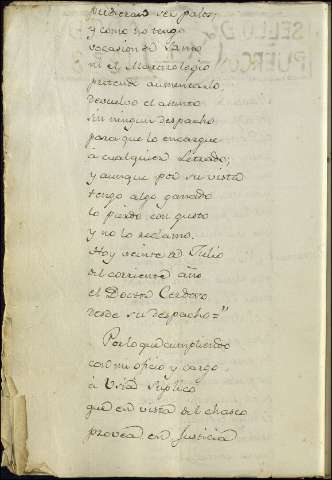 pudieran ser palos;
y como no tengo
vocasion de Santo
ni el Martirologio
pretendo aumentarlo
devuelvo el asunto
sin ningun despacho
para que lo encargue
á cualquier Letrado;
y aunque por su vista
tengo algo ganado
lo pierdo con gusto
y no lo reclamo.
Hoy veinte de Julio
del corriente año
el Doctor Cordero
desde su despacho="
Por lo que cumpliendo
con mi oficio y cargo
a Usía Suplico
que en vista del chasco
provea en Justicia